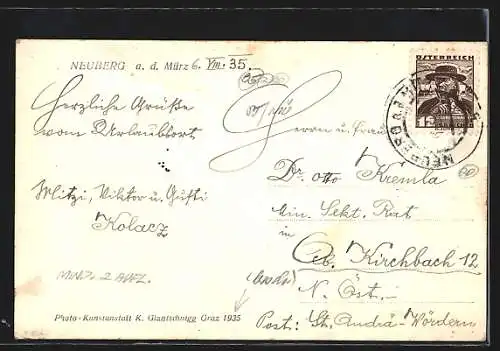 NEUBERG a. d. Mürz 6. VIII. 35.
Herzliche Grüße
vom Urlaubsort
Mitzi, Viktor u. Gusti
Kolacz
MIND. 2 ABZ.
Photo-Kunstanstalt K. Glantschnigg Graz 1935
ÖSTERREICH
12
NEUBERG
Herrn u. Frau
Dr. Otto Kremla
Min. Sekt. Rat
in
Kirchbach 12
N. Öst.
Post: St. Andrä-Wördern